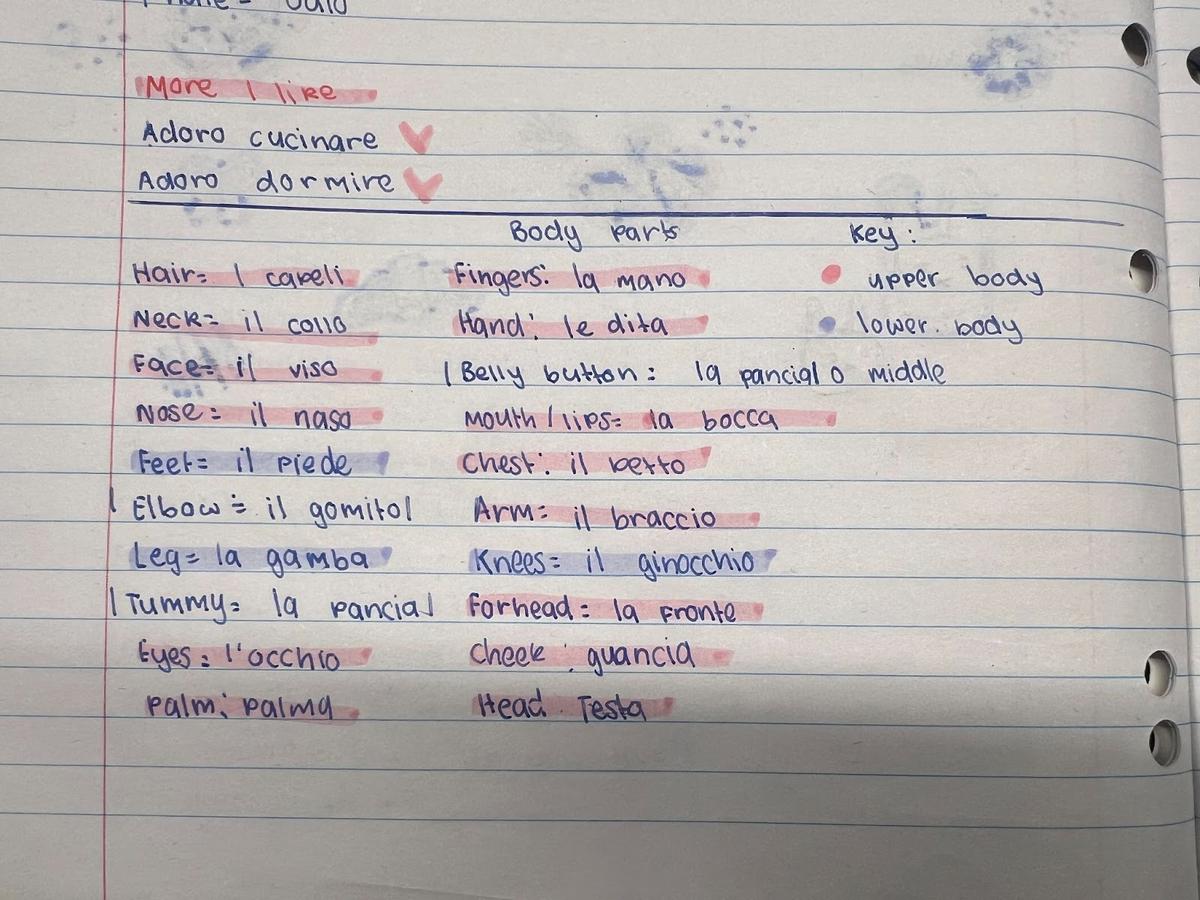 More I like
Adoro cucinare
Adoro dormire
Body parts Key:
Hair= I capeli Fingers: la mano upper body
Neck= il collo Hand: le dita lower body
Face= il viso Belly button: la pancia | o middle
Nose= il naso Mouth/lips= la bocca
Feet= il piede Chest: il petto
| Elbow= il gomito| Arm= il braccio
Leg= la gamba Knees= il ginocchio
| Tummy= la pancia| Forhead= la fronte
Eyes: l'occhio Cheek: guancia
Palm: palma Head. Testa